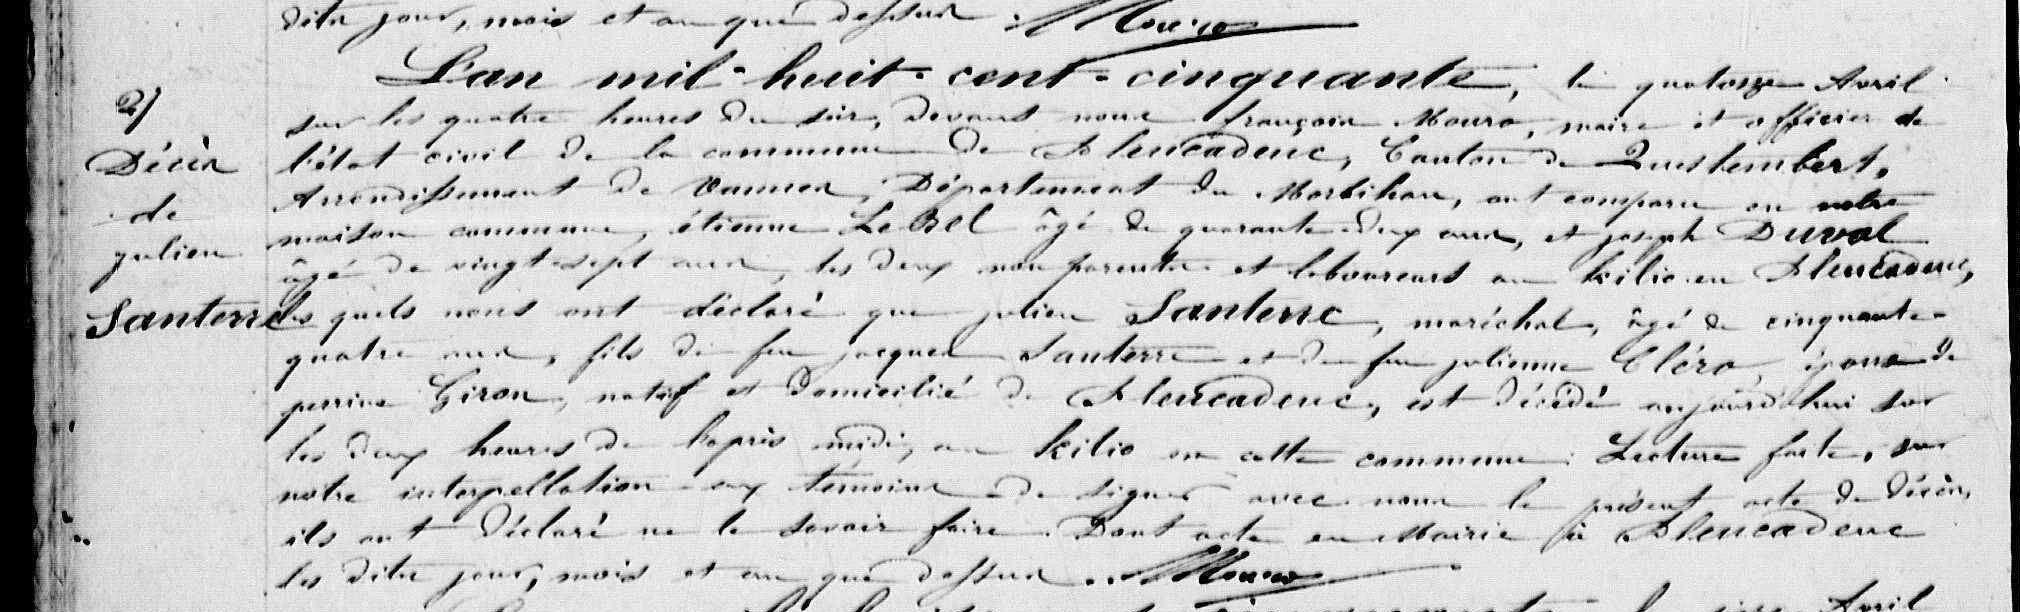 dits jour, mois et an que dessus. Mouro
2/
Décès
de
julien
Santerre
L'an mil-huit-cent-cinquante, le quatorze Avril
sur les quatre heures du soir, devant nous françois Mouro, maire et officier de
l'état civil de la commune de Pleucadeuc, Canton de Questembert,
Arrondissement de Vannes, Département du Morbihan, ont comparu en notre
maison commune, étienne Le Bel âgé de quarante-deux ans, et joseph Duval
âgé de vingt-sept ans, les deux non parents et laboureurs au kilio en Pleucadeuc,
les quels nous ont déclaré que julien Santerre, maréchal, âgé de cinquante-
quatre ans, fils de feu jacques Santerre et de feu julienne Cléro, époux de
perrine Giron, natif et domicilié de Pleucadeuc, est décédé aujourd'hui sur
les deux heures de l'après midi, au kilio en cette commune. Lecture faite, sur
notre interpellation aux témoins de signer avec nous le présent acte de décès,
ils ont déclaré ne le savoir faire. Dont acte en Mairie à Pleucadeuc
les dits jour, mois et an que dessus. Mouro